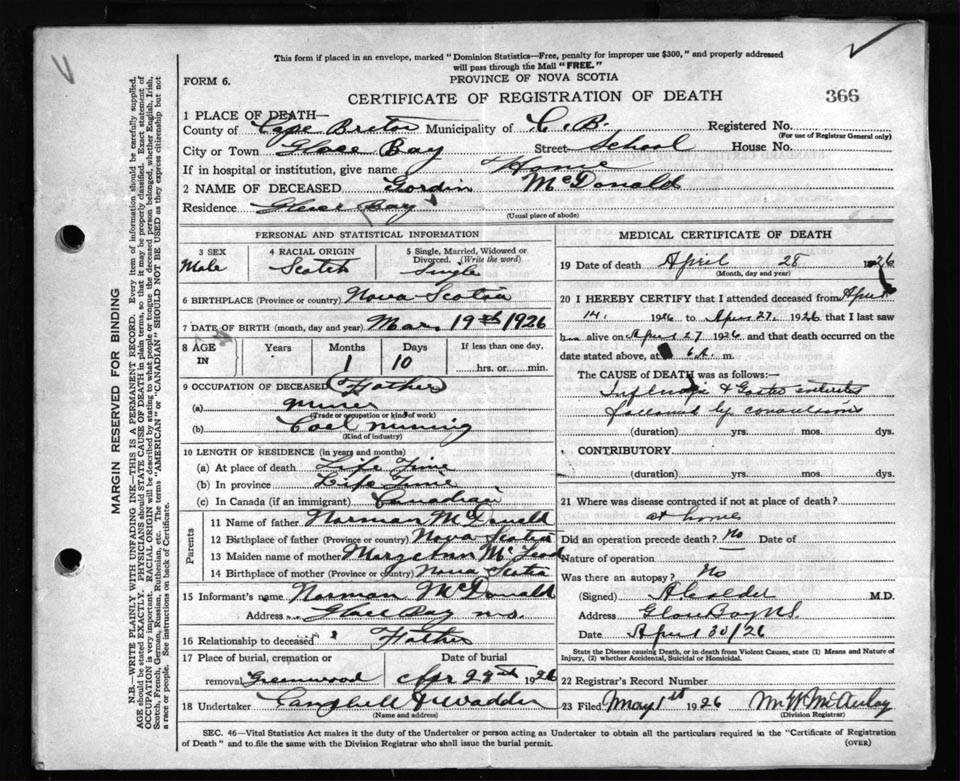 This form if placed in an envelope, marked "Dominion Statistics—Free, penalty for improper use $300," and properly addressed
will pass through the Mail "FREE."
FORM 6.
PROVINCE OF NOVA SCOTIA
CERTIFICATE OF REGISTRATION OF DEATH
366
1 PLACE OF DEATH—
County of Cape Breton Municipality of C. B. Registered No.
(For use of Registrar General only)
City or Town Glace Bay Street School House No.
If in hospital or institution, give name Home
2 NAME OF DECEASED Gordin McDonald
Residence Glace Bay
(Usual place of abode)
PERSONAL AND STATISTICAL INFORMATION
3 SEX
Male
4 RACIAL ORIGIN
Scotch
5 Single, Married, Widowed or
Divorced. (Write the word)
Single
6 BIRTHPLACE (Province or country) Nova Scotia
7 DATE OF BIRTH (month, day and year) Mar. 19th 1926
8 AGE
IN
Years
Months
1
Days
10
If less than one day,
hrs. or min.
9 OCCUPATION OF DECEASED Father
(a) miner
(Trade or occupation or kind of work)
(b) Coal mining
(Kind of industry)
10 LENGTH OF RESIDENCE (in years and months)
(a) At place of death Life Time
(b) In province Life Time
(c) In Canada (if an immigrant) Canadian
Parents
11 Name of father Norman McDonald
12 Birthplace of father (Province or country) Nova Scotia
13 Maiden name of mother Mary Ann McLeod
14 Birthplace of mother (Province or country) Nova Scotia
15 Informant's name Norman McDonald
Address Glace Bay N.S.
16 Relationship to deceased Father
17 Place of burial, cremation or
removal Greenwood
Date of burial
Apr 29th 1926
18 Undertaker Campbell & Wadden
(Name and address)
MEDICAL CERTIFICATE OF DEATH
19 Date of death April 28 1926
(Month, day and year)
20 I HEREBY CERTIFY that I attended deceased from April
14. 1926 to April 27, 1926 that I last saw
him alive on April 27 1926 and that death occurred on the
date stated above, at 6 A. m.
The CAUSE of DEATH was as follows:—
Influenza & Gastro enteritis
followed by convulsions
(duration) yrs. mos. dys.
CONTRIBUTORY
(duration) yrs. mos. dys.
21 Where was disease contracted if not at place of death?
at home
Did an operation precede death? No Date of
Nature of operation
Was there an autopsy? No
(Signed) M.D.
Address Glace Bay N.S.
Date April 30/26
State the Disease causing Death, or in death from Violent Causes, state (1) Means and Nature of
Injury, (2) whether Accidental, Suicidal or Homicidal.
22 Registrar's Record Number
23 Filed May 1st 1926 M. W. McAulay
(Division Registrar)
SEC. 46—Vital Statistics Act makes it the duty of the Undertaker or person acting as Undertaker to obtain all the particulars required in the "Certificate of Registration
of Death" and to file the same with the Division Registrar who shall issue the burial permit.
(OVER)
MARGIN RESERVED FOR BINDING
N.B. WRITE PLAINLY WITH UNFADING INK—THIS IS A PERMANENT RECORD. Every item of information should be carefully supplied.
AGE should be stated EXACTLY. PHYSICIANS should STATE CAUSE OF DEATH in plain terms, so that it may be properly classified. Exact statement of
OCCUPATION is very important. RACIAL ORIGIN will be described by stating to what people or tongue the deceased person belonged, whether English, Irish,
Scotch, French, German, Russian, Ruthenian, etc. The terms "AMERICAN" or "CANADIAN" SHOULD NOT BE USED as they express citizenship but not
a race or people. See instructions on back of Certificate.